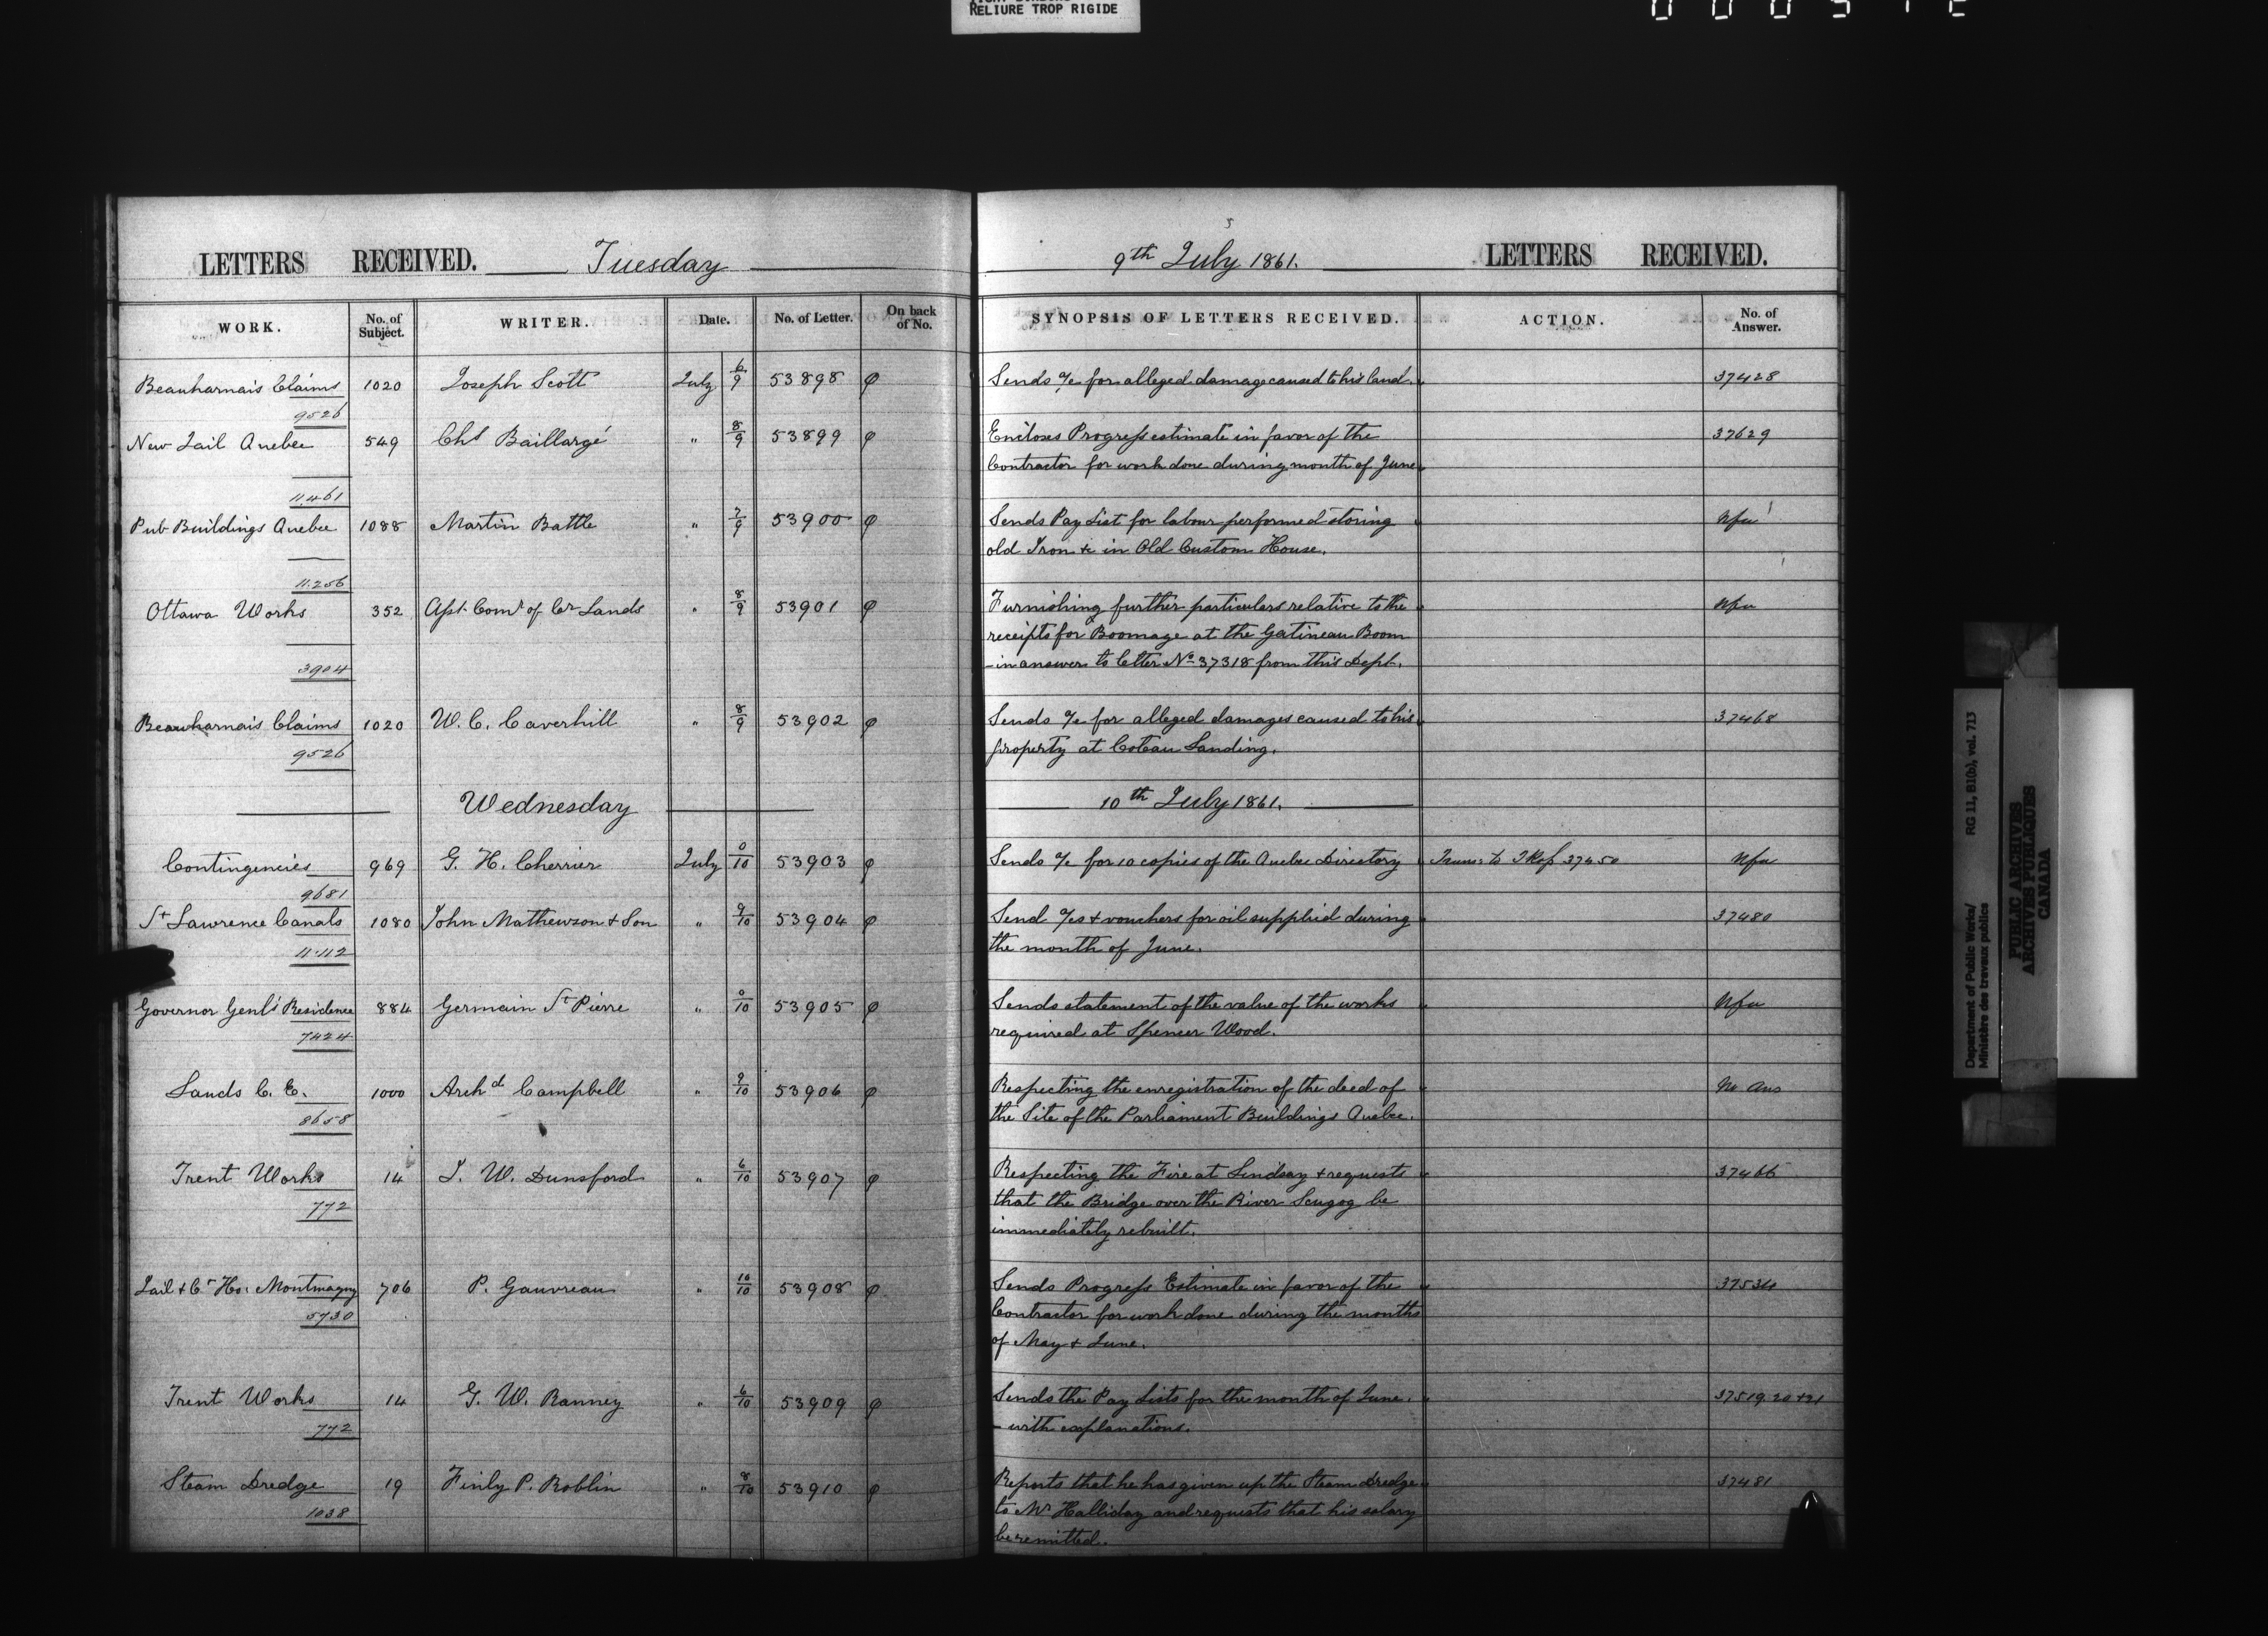 RELIURE TROP RIGIDE
LETTERS RECEIVED. Tuesday
9th July 1861. LETTERS RECEIVED.
WORK. No. of Subject. WRITER. Date. No. of Letter. On back of No. SYNOPSIS OF LETTERS RECEIVED. ACTION. No. of Answer.
Beauharnais Claims 1020 Joseph Scott July 6/9 53898 φ Sends a/c for alleged damage caused to his land. 37428
9526
New Jail Quebec 549 Chs Baillargé " 8/9 53899 φ Encloses Progress estimate in favor of the 37629
Contractor for work done during month of June
11.461
Pub Buildings Quebec 1088 Martin Battle " 7/9 53900 φ Sends Pay List for labour performed storing Nfu
old Iron &c in Old Custom House.
11.256
Ottawa Works 352 Asst. Comr of Cr Lands " 8/9 53901 φ Furnishing further particulars relative to the Nfu
receipts for Boomage at the Gatineau Boom
- in answer to letter No 37318 from this Dept.
3904
Beauharnais Claims 1020 W. C. Caverhill " 8/9 53902 φ Sends a/c for alleged damages caused to his 37468
property at Coteau Landing.
9526
Wednesday 10th July 1861.
Contingencies 969 G. H. Cherrier July 0/10 53903 φ Sends a/c for 10 copies of the Quebec Directory 37450 Nfu
9681
St Lawrence Canals 1080 John Mathewson & Son " 9/10 53904 φ Send a/cs & vouchers for oil supplied during 37480
the month of June.
11.112
Governor Genl's Residence 884 Germain St Pierre " 0/10 53905 φ Sends statement of the value of the works Nfu
required at Spencer Wood.
7424
Lands C. E. 1000 Archd Campbell " 9/10 53906 φ Respecting the enregistration of the deed of No Ans
the Site of the Parliament Buildings Quebec.
8658
Trent Works 14 J. W. Dunsford " 6/10 53907 φ Respecting the Fire at Lindsay & requests 37466
that the Bridge over the River Scugog be
immediately rebuilt.
772
Jail & Ct Ho: Montmagny 706 P. Gauvreau " 10/10 53908 φ Sends Progress Estimate in favor of the 37534
Contractor for work done during the months
of May & June.
5730
Trent Works 14 G. W. Ranney " 6/10 53909 φ Sends the Pay Lists for the month of June. 37519.20 & 21
- with explanations.
772
Steam Dredge 19 Finly P. Roblin " 8/10 53910 φ Reports that he has given up the Steam Dredge 37481
to Mr Halliday and requests that his salary
be remitted.
1038
Department of Public Works/ RG 11, B1(b), vol. 713
Ministère des travaux publics
PUBLIC ARCHIVES
ARCHIVES PUBLIQUES
CANADA